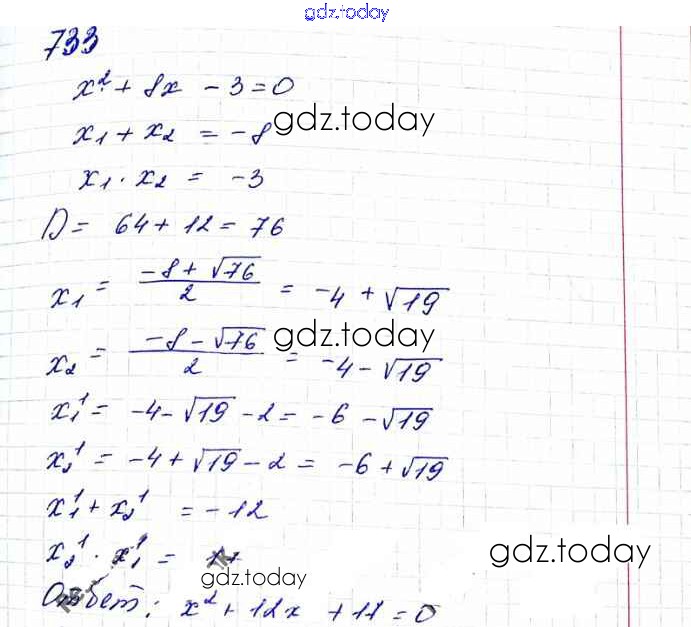 gdz.today
733
x² + 8x - 3 = 0
x₁ + x₂ = -8
gdz.today
x₁ · x₂ = -3
D = 64 + 12 = 76
x₁ = (-8 + √76)/2 = -4 + √19
gdz.today
x₂ = (-8 - √76)/2 = -4 - √19
x₁¹ = -4 - √19 - 2 = -6 - √19
x₂¹ = -4 + √19 - 2 = -6 + √19
x₁¹ + x₂¹ = -12
x₂¹ · x₁¹ =
gdz.today
gdz.today
Ответ: x² + 12x + 17 = 0